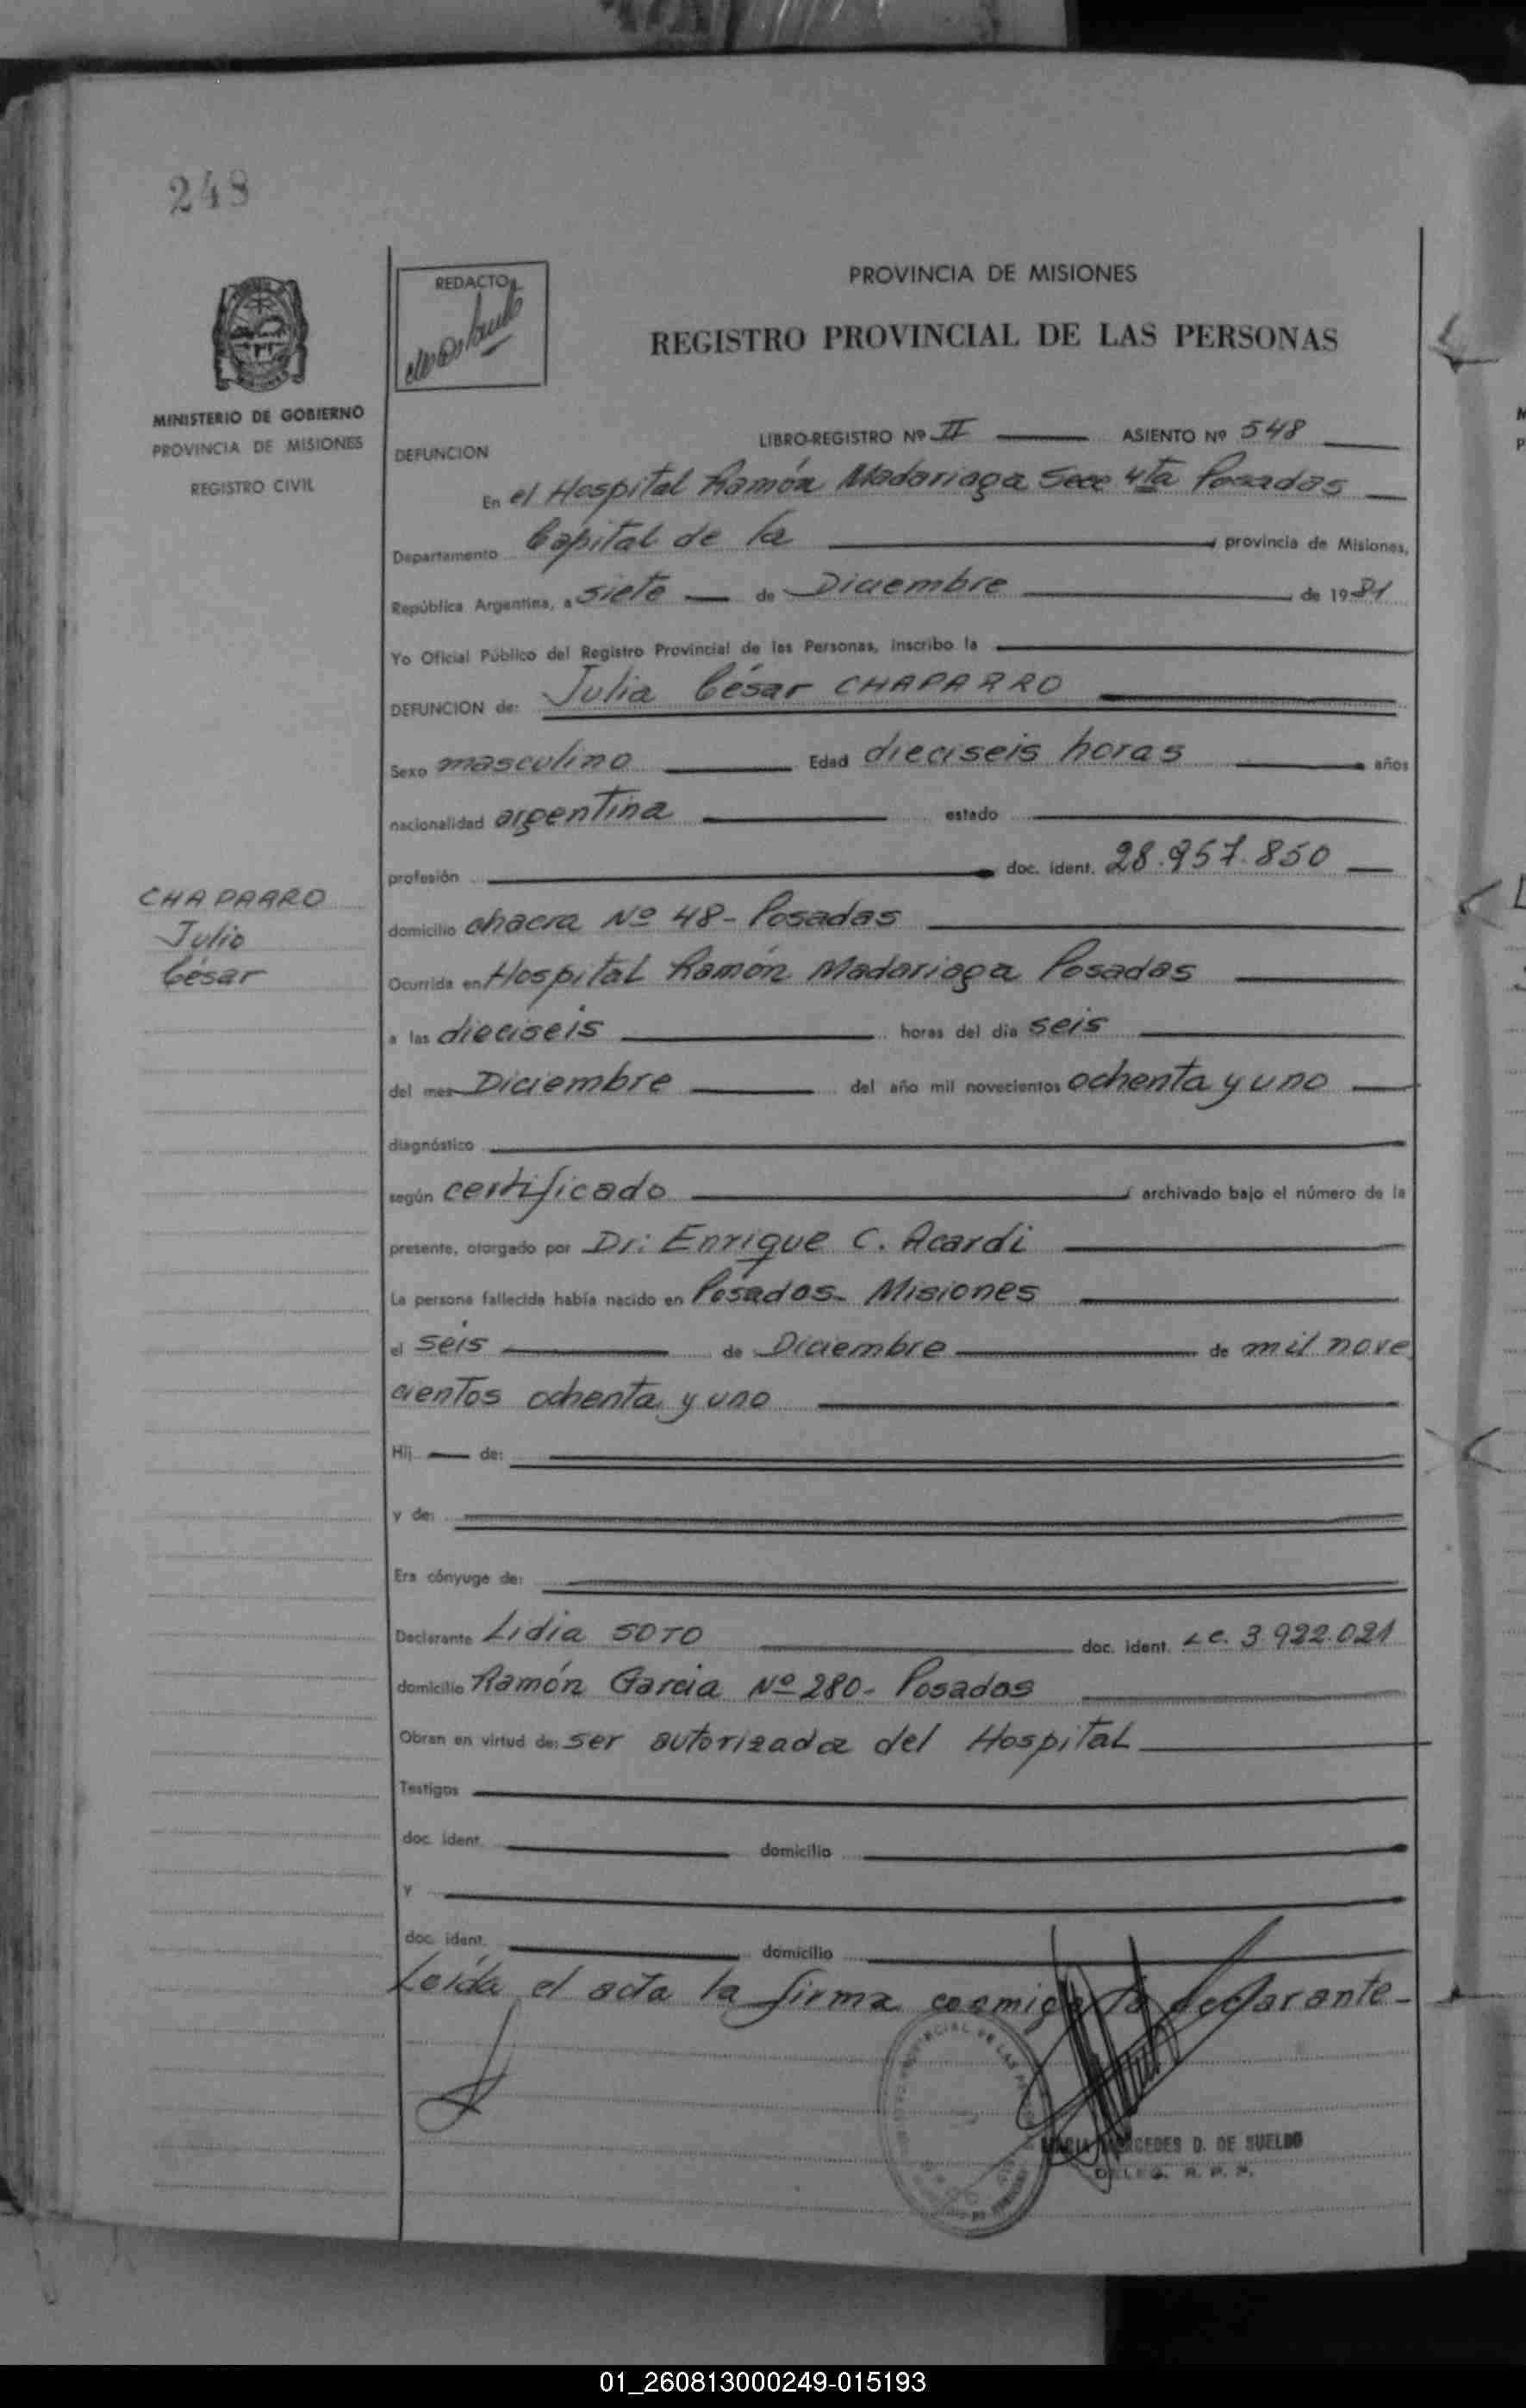 248
MINISTERIO DE GOBIERNO
PROVINCIA DE MISIONES
REGISTRO CIVIL
REDACTO
PROVINCIA DE MISIONES
REGISTRO PROVINCIAL DE LAS PERSONAS
DEFUNCION
LIBRO-REGISTRO Nº II ASIENTO Nº 548
En el Hospital Ramón Madariaga Secc 4ta Posadas
Departamento Capital de la provincia de Misiones,
República Argentina, a siete de Diciembre de 1981
Yo Oficial Público del Registro Provincial de las Personas, inscribo la
DEFUNCION de: Julia César CHAPARRO
Sexo masculino Edad dieciseis horas años
nacionalidad argentina estado
profesión doc. ident. 28.957.850
CHAPARRO
Julio
César
domicilio chacra Nº 48 - Posadas
Ocurrida en Hospital Ramón Madariaga Posadas
a las dieciseis horas del día seis
del mes Diciembre del año mil novecientos ochenta y uno
diagnóstico
según certificado archivado bajo el número de la
presente, otorgado por Dr: Enrique C. Acardi
La persona fallecida había nacido en Posadas - Misiones
el seis de Diciembre de mil nove
cientos ochenta y uno
Hij de:
y de:
Era cónyuge de:
Declarante Lidia SOTO doc. ident. L.C. 3.922.021
domicilio Ramón Garcia Nº 280 - Posadas
Obran en virtud de: ser autorizada del Hospital
Testigos
doc. ident. domicilio
y
doc. ident. domicilio
Leída el acta la firma conmigo la declarante -
MARIA MERCEDES D. DE SUELDO
DELEG. R. P. P.
01_260813000249-015193